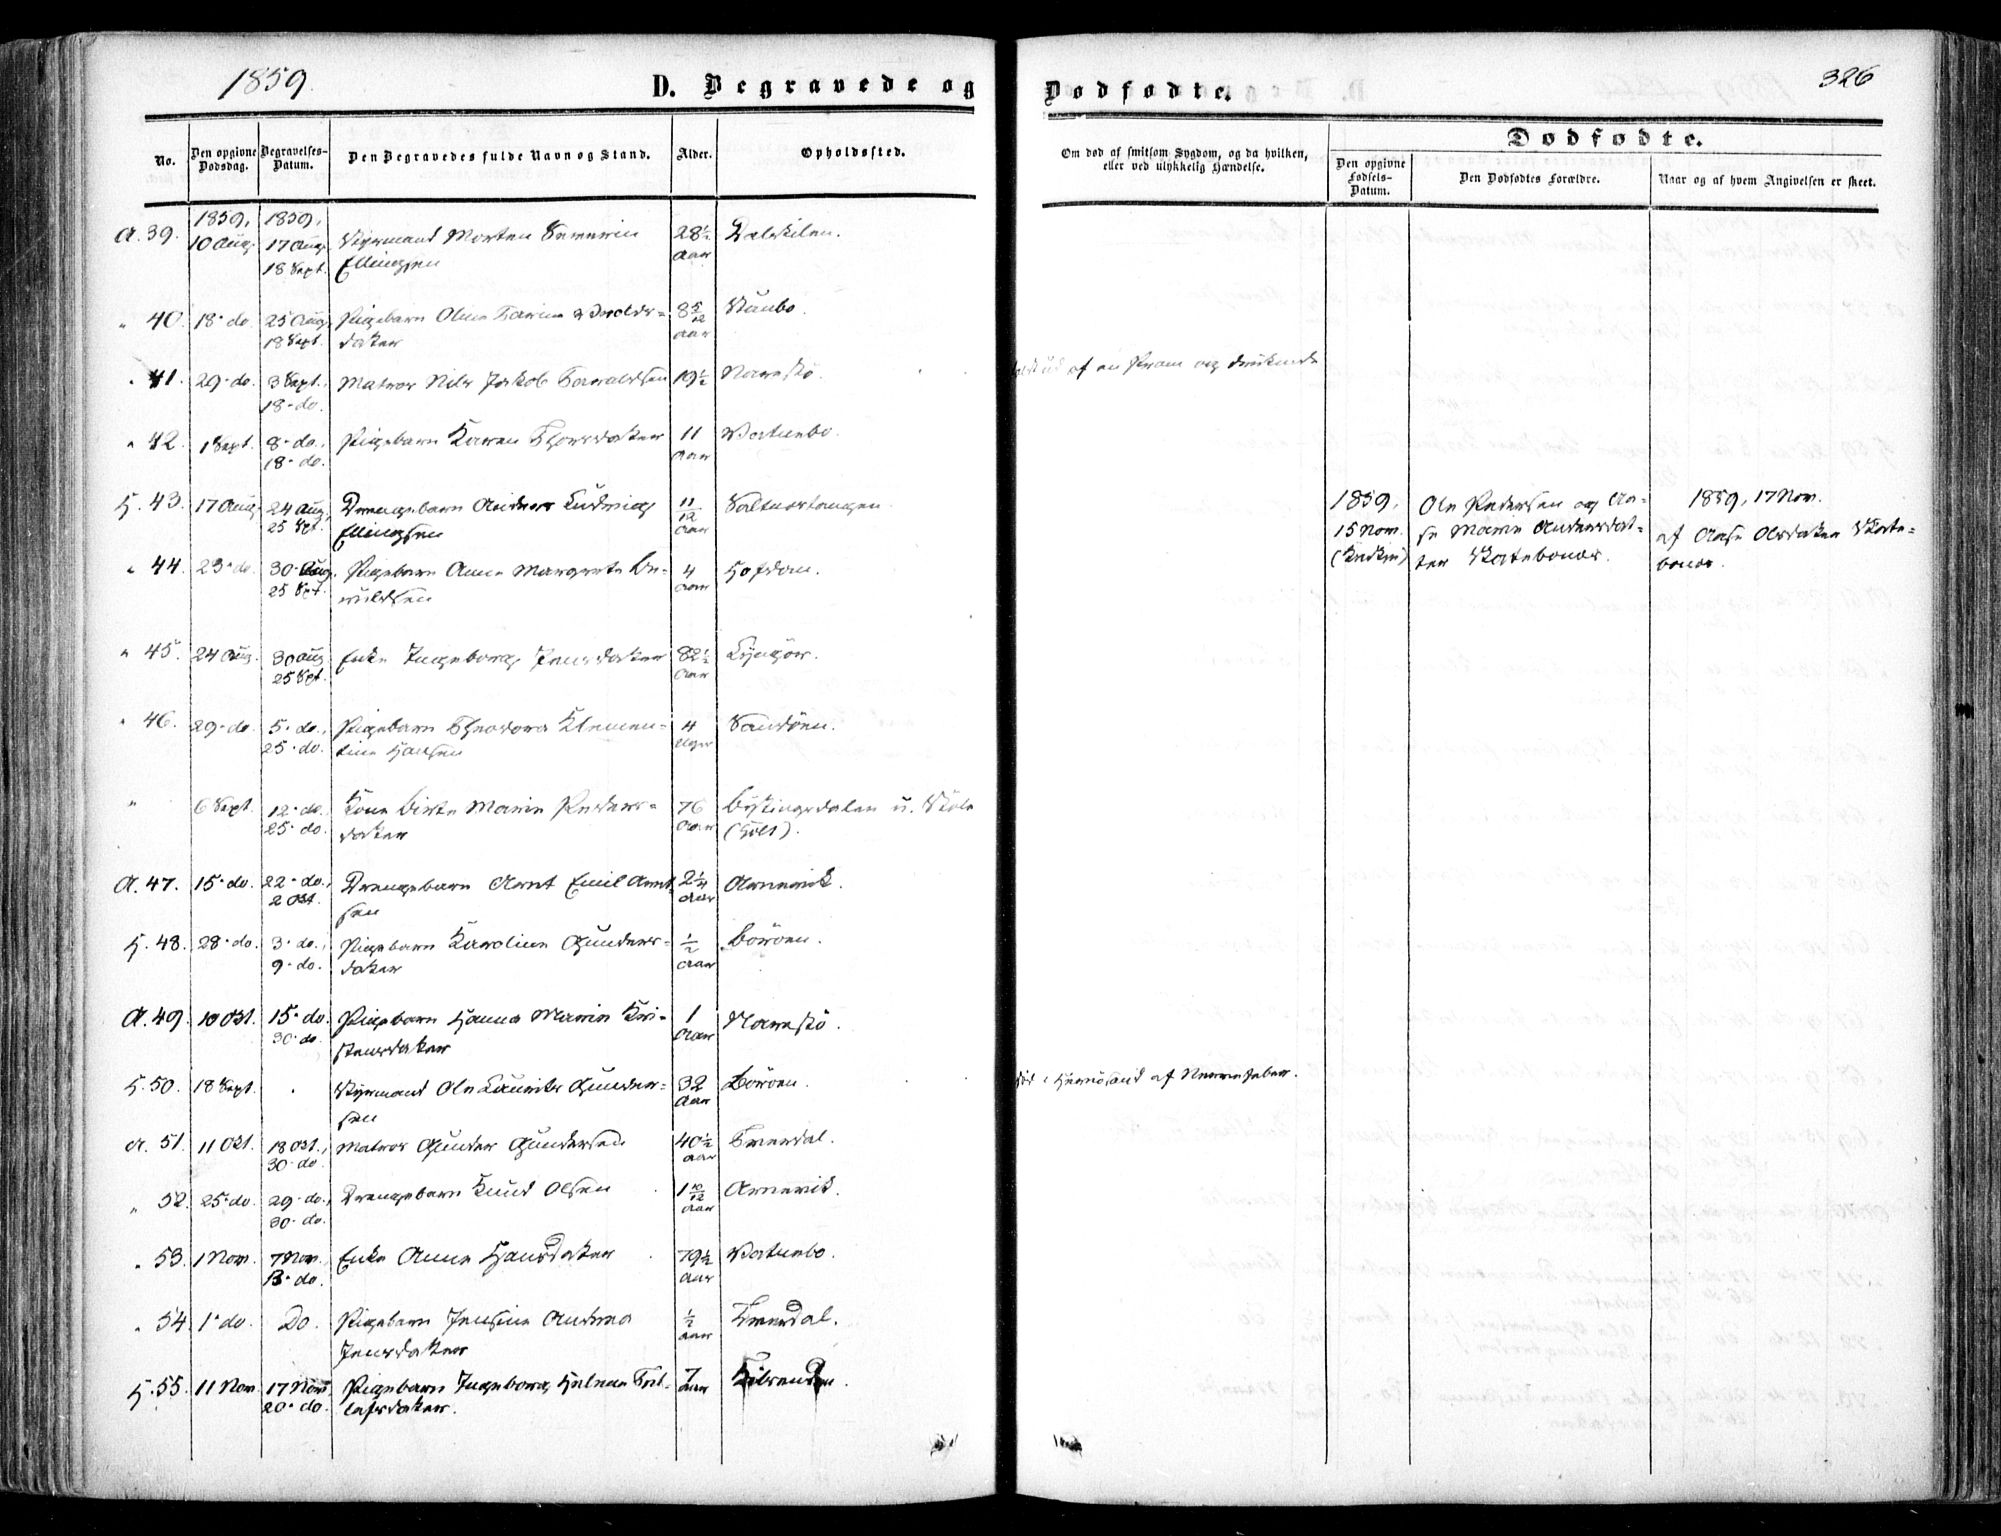 1859.
D. Begravede og
Dødfødte.
326
No.
Den opgivne Dødsdag.
Begravelses-Datum.
Den Begravedes fulde Navn og Stand.
Alder.
Opholdssted.
Om død af smitsom Sygdom, og da hvilken,
eller ved ulykkelig Hændelse.
Dødfødte.
Den opgivne Fødsels-Datum.
Den Dødfødtes Forældre.
Naar og af hvem Angivelsen er skeet.
1859, 1859,
A. 39. 10 Aug. 17 Aug. Styrmand Morten Severin 28½ Dalskilen.
18 Sept. Ellingsen Aar
" 40. 18 do. 25 Aug. Pigebarn Oline Karine 8 5/12 Staubo.
18 Sept. datter Aar
" 41. 29 do. 3 Sept. Matros Nils Jakob Taraldsen 19½ Narestø.
18 do.
af en Pram og druknede
" 42. 1 Sept. 8 do. Pigebarn Karen Thorsdatter 11 Vatnebo.
18 do. Aar
H. 43. 17 Aug. 24 Aug. Drengebarn Andreas Ludvig 11/12 Saltnestangen.
25 Spt. Ellingsen Aar
" 44. 23 do. 30 Aug. Pigebarn Anne Margrete 4 Hofdan.
25 Spt. Aar
" 45. 24 Aug. 30 Aug. Enke Ingeborg Jensdatter 82½ Lyngør.
25 Spt. Aar
" 46. 29 do. 5 do. Pigebarn Theodora Klemen- 4 Sandøen.
25 do. tine Hansen Uger
" 6 Sept. 12 do. Kone Birte Marie Peders- 76 u. Skole
25 do. datter Aar (Holt).
A. 47. 15 do. 22 do. Drengebarn Arnt Emil Arnt- 2¼ Arnevik.
2 Okt. sen Aar
H. 48. 28 do. 3 do. Pigebarn Karoline Gunders- ½ Borøen.
9 do. datter Aar
A. 49. 10 Okt. 15 do. Pigebarn Hanna Marie Kri- 1 Narestø.
30 do. stensdatter Aar
H. 50. 18 Sept. . Styrmand Ole Laurits Gunder- 32 Borøen.
sen Aar
død i Hernøsand af Nervefeber.
A. 51. 11 Okt. 18 Okt. Matros Gunder Gundersen 40½ Tverdal.
30 do. Aar
" 52. 25 do. 29 do. Drengebarn Knud Olsen 1 10/12 Arnevik.
30 do. Aar
" 53. 1 Nov. 7 Nov. Enke Anne Hansdatter 79½ Vatnebo.
13 do. Aar
" 54. 1 do. Do. Pigebarn Jensine Andrea ½ Tverdal.
Jensdatter Aar
H. 55. 11 Nov. 17 Nov. Pigebarn Ingeborg Helene Tol- 7
20 do. lefsdatter. Aar
1859,
15 Nov.
Ole Pedersen og Aa-
se Marie Andersdat-
ter Skotebones.
1859, 17 Nov.
af Aase Olsdatter Skote-
bones.